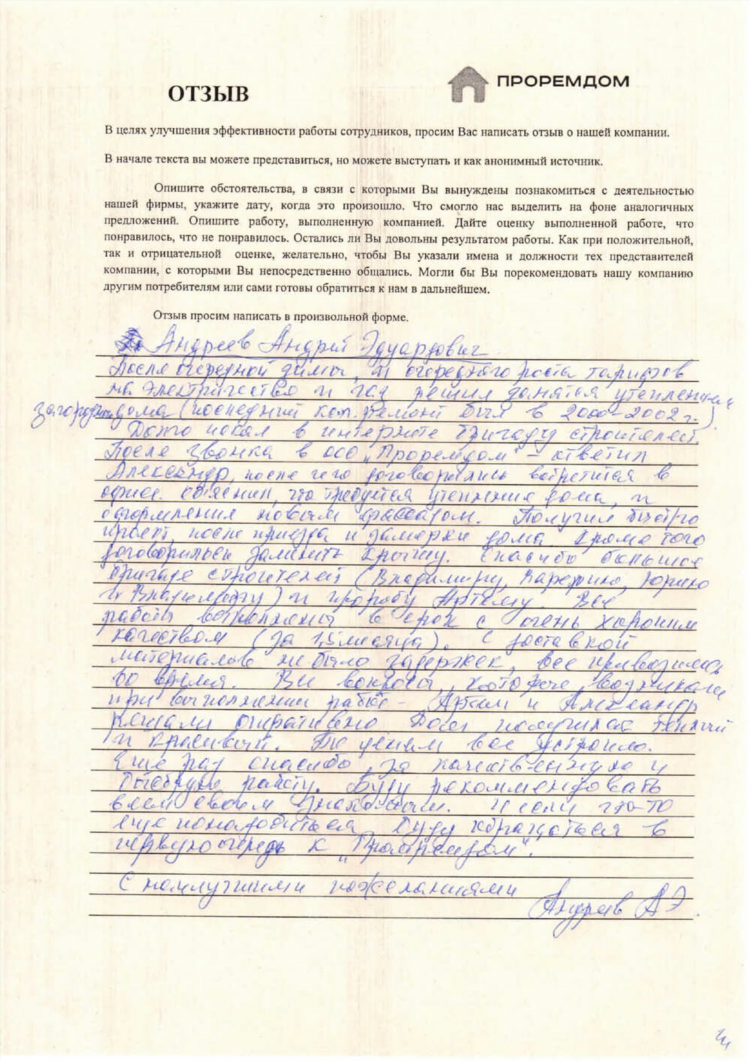 ОТЗЫВ
ПРОРЕМДОМ
В целях улучшения эффективности работы сотрудников, просим Вас написать отзыв о нашей компании.
В начале текста вы можете представиться, но можете выступать и как анонимный источник.
Опишите обстоятельства, в связи с которыми Вы вынуждены познакомиться с деятельностью
нашей фирмы, укажите дату, когда это произошло. Что смогло нас выделить на фоне аналогичных
предложений. Опишите работу, выполненную компанией. Дайте оценку выполненной работе, что
понравилось, что не понравилось. Остались ли Вы довольны результатом работы. Как при положительной,
так и отрицательной оценке, желательно, чтобы Вы указали имена и должности тех представителей
компании, с которыми Вы непосредственно общались. Могли бы Вы порекомендовать нашу компанию
другим потребителям или сами готовы обратиться к нам в дальнейшем.
Отзыв просим написать в произвольной форме.
Андреев Андрей Эдуардович
После очередной зимы, и очередного роста тарифов
на электричество и газ решил занятся утеплением
загородн дома (последний кап. ремонт был в 2000-2002 г.)
Долго искал в интернете бригаду строителей.
После звонка в ооо "Проремдом" - ответил
Александр, после чего договорились встретится в
офисе. Обяснил, что требуется утепление дома, и
оформления новым фасадом. Получил быстро
проект, после приезда и замерки дома. Кроме того
договорились заменить крышу. Спасибо большое
бригаде строителей (Владимиру, Юрию
Владимиру) и прорабу Артему. Все
работы выполнены в срок с очень хорошим
качеством (за 1,5 месяца). С доставкой
материалов не было задержек, все привозилось
во время. Все вопросы, которые возникали
при выполнении работ - Артем и Александр
решали оперативно. Дом получился теплый
и красивый. По ценам все устроило.
Еще раз спасибо за качественную и
быструю работу. Буду рекомендовать
всем своим знакомым. И если что-то
еще понадобиться буду обращаться в
первую очередь к "Проремдом".
С наилучшими пожеланиями
Андреев АЭ.